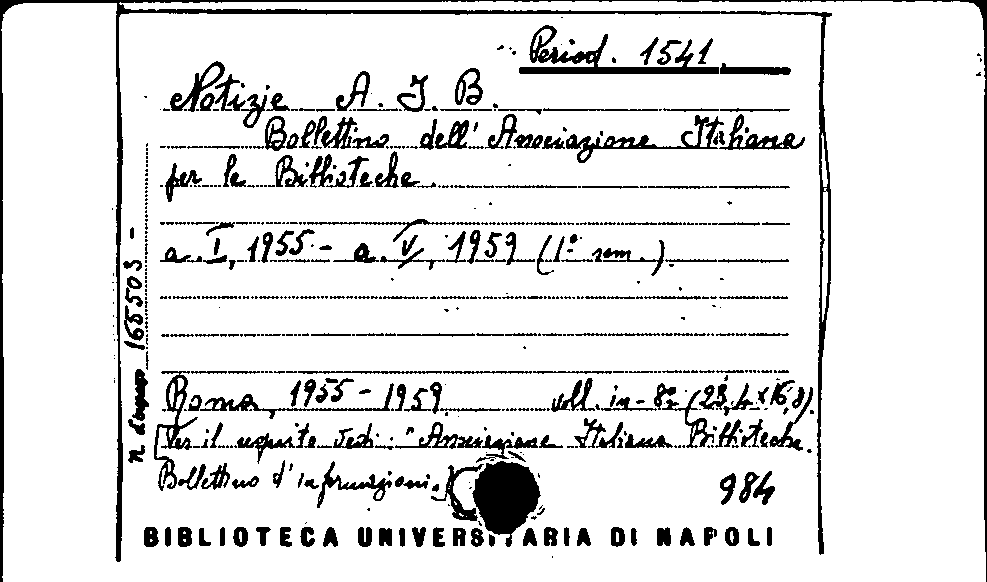 Period. 1541
Notizje A. I. B.
Bollettino dell' Associazione Italiana
per le Biblioteche.
a. I, 1955 - a. V, 1959 (1º sem.).
n. d'ingresso 165503 -
Roma, 1955 - 1959. voll. in - 8º (23,4 x 16,8).
[Per il seguito vedi: "Associazione Italiana Biblioteche.
Bollettino d'informazioni.]
984
BIBLIOTECA UNIVERSITARIA DI NAPOLI